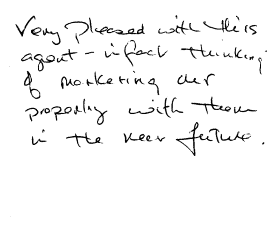 Very pleased with this
agent - infact thinking
of marketing our
property with them
in the near future.